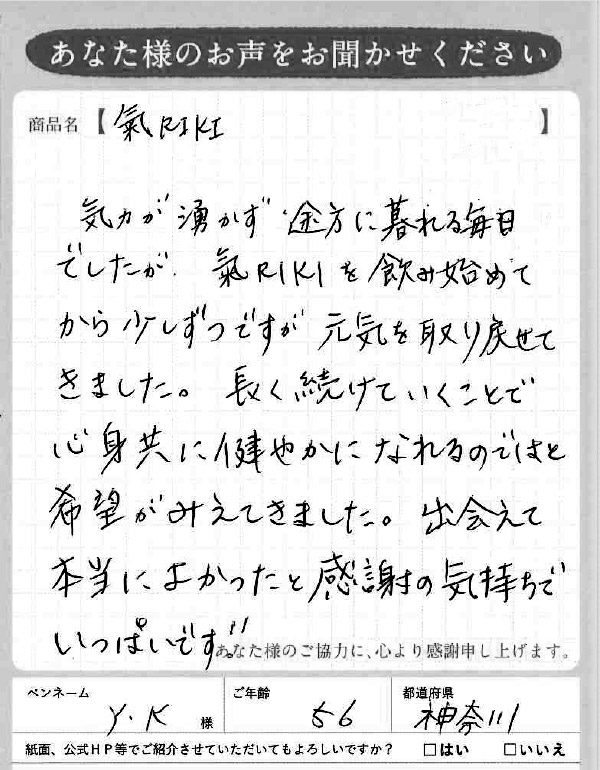 あなた様のお声をお聞かせください
商品名【氣RIKI】
気力が湧かず途方に暮れる毎日
でしたが、氣RIKIを飲み始めて
から少しずつですが元気を取り戻せて
きました。長く続けていくことで
心身共に健やかになれるのではと
希望がみえてきました。出会えて
本当によかったと感謝の気持ちで
いっぱいです!!
あなた様のご協力に、心より感謝申し上げます。
ペンネーム Y.K 様 ご年齢 56 都道府県 神奈川
紙面、公式HP等でご紹介させていただいてもよろしいですか? □はい □いいえ